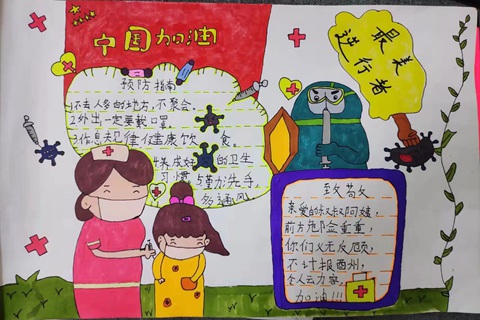 中国加油
最美
逆行者
预防指南
1.不去人多的地方,不聚会
2.外出一定要戴口罩
3.作息规律健康饮食
养成好的卫生
习惯
5.勤洗手
多通风
致敬
亲爱的叔叔阿姨,
前方危险重重,
你们义无反顾,
不计报酬,
加油!!!